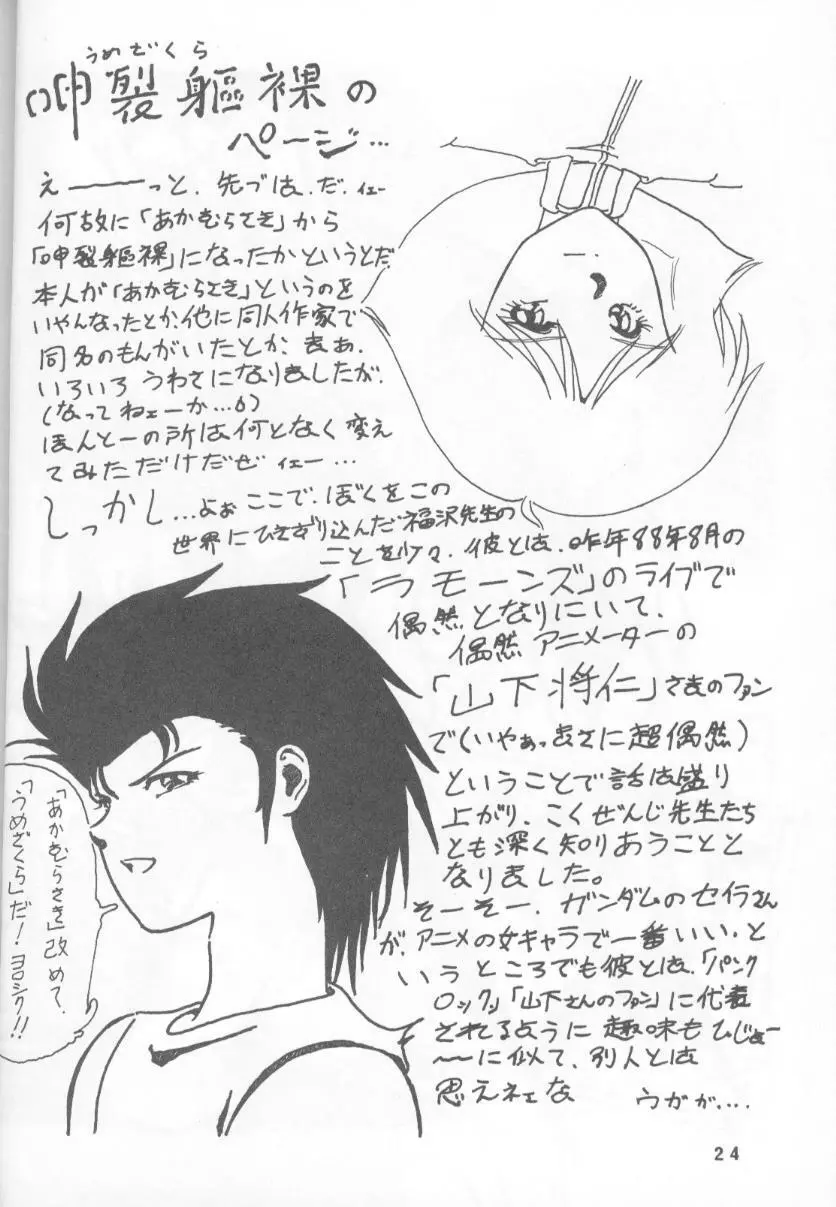 うめざくら
呻裂軀裸の
ページ…
えーーーっと、先づは、だ、イェー
何故に「あかむらさき」から
「呻裂軀裸」になったかというとだ、
本人が「あかむらさき」というのを
いやんなったとか、他に同人作家で
同名のもんがいたとか、まぁ、
いろいろ うわさになりましたが、
(なってねェーか…)
ほんとーの所は何となく変え
てみただけだぜ イェー…
しっかし…よぉ ここで、ぼくをこの
世界にひきずり込んだ福沢先生の
ことを少々、彼とは、昨年88年8月の
「ラモーンズ」のライブで
偶然となりにいて、
偶然アニメーターの
「山下将仁」さまのファン
で(いやぁっまさに超偶然)
ということで話は盛り
上がり、こくぜんじ先生たち
とも深く知りあうことと
なりました。
そーそー、ガンダムのセイラさん
が、アニメの女キャラで一番いい、と
いうところでも彼とは、「パンク
ロック」「山下さんのファン」に代表
されるように趣味もひじょー
〜〜に似て、別人とは
思えネェな ウガガ….
「あかむらさき」改めて、
「うめざくら」だ！ヨロシク!!
24